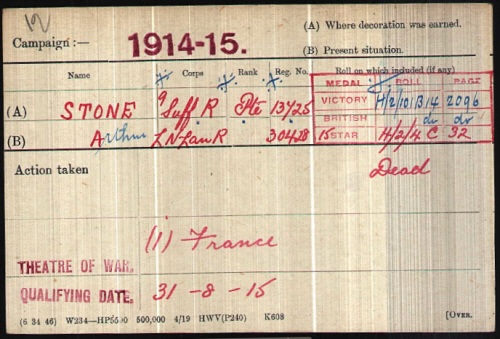 Campaign :— 1914-15. (A) Where decoration was earned.
(B) Present situation.
Name Corps Rank Reg. No. Roll on which included (if any)
MEDAL ROLL PAGE
(A) STONE 9 Suff R Pte 13725 VICTORY H/2/10/B14 2096
BRITISH do do
(B) Arthur L N Lan R 30428 15 STAR H/2/4 C 32
Action taken Dead
(1) France
THEATRE OF WAR.
QUALIFYING DATE. 31 - 8 - 15
(6 34 46) W234—HP5590 500,000 4/19 HWV(P240) K608 [OVER.